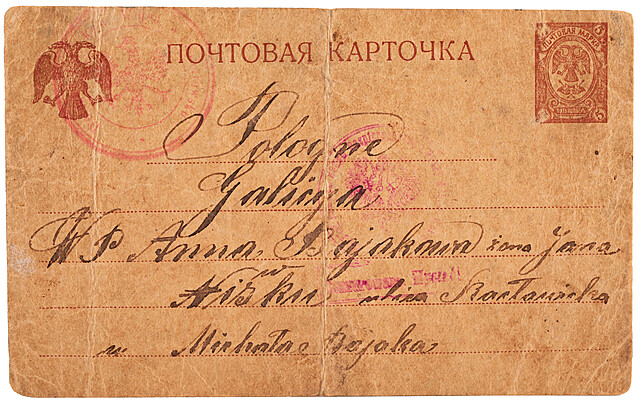 ПОЧТОВАЯ КАРТОЧКА
ПОЧТОВАЯ МАРКА
5 5
Pologne
Galicya
WP Anna Bojakowa żona Jana
w
Nisku ulica
u Michała Bojaka